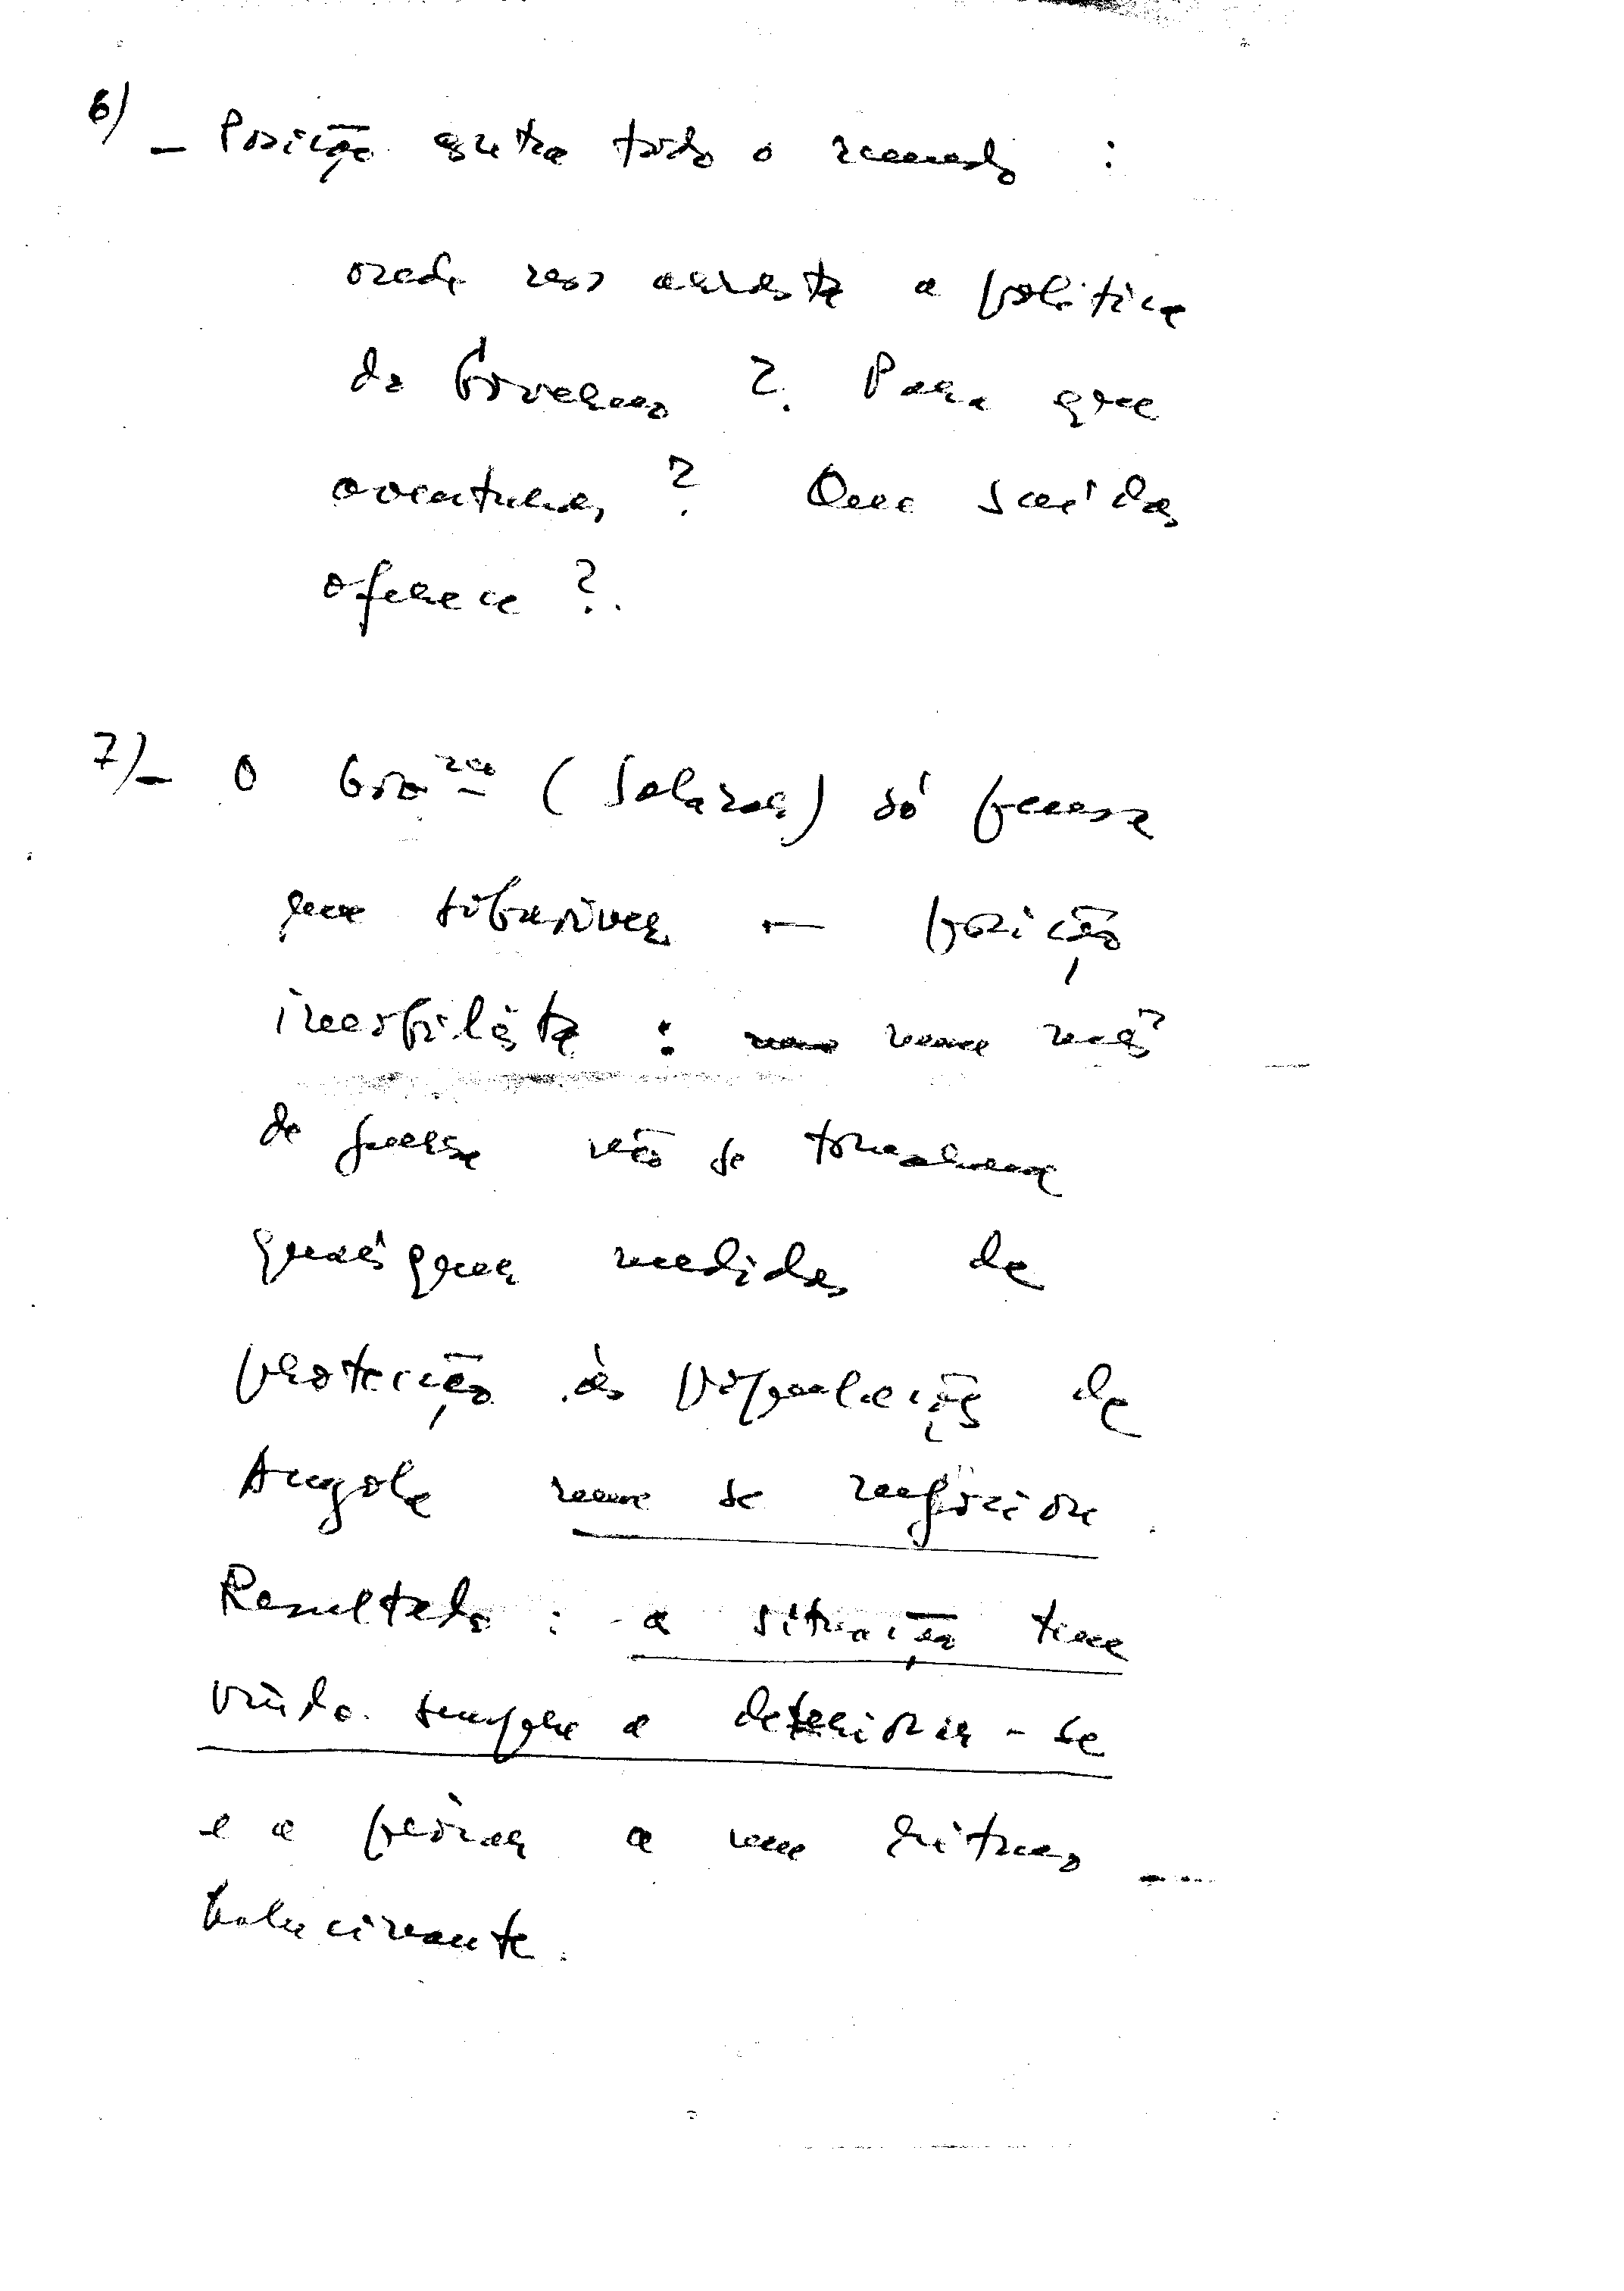 6) – Posição contra todo o mundo :
onde nos arrasta a política
do Governo ?. Para que
aventuras ? Que saídas
oferece ?.
7) – O Gov<sup>no</sup> (Salazar) só pensa
em sobreviver — posição
imobilista : num mês
de guerra não se tomaram
quaisquer medidas de
protecção às populações de
Angola nem se negociou.
Resultado : a situação tem
vindo sempre a deteriorar-se
e a piorar a um ritmo
alucinante.